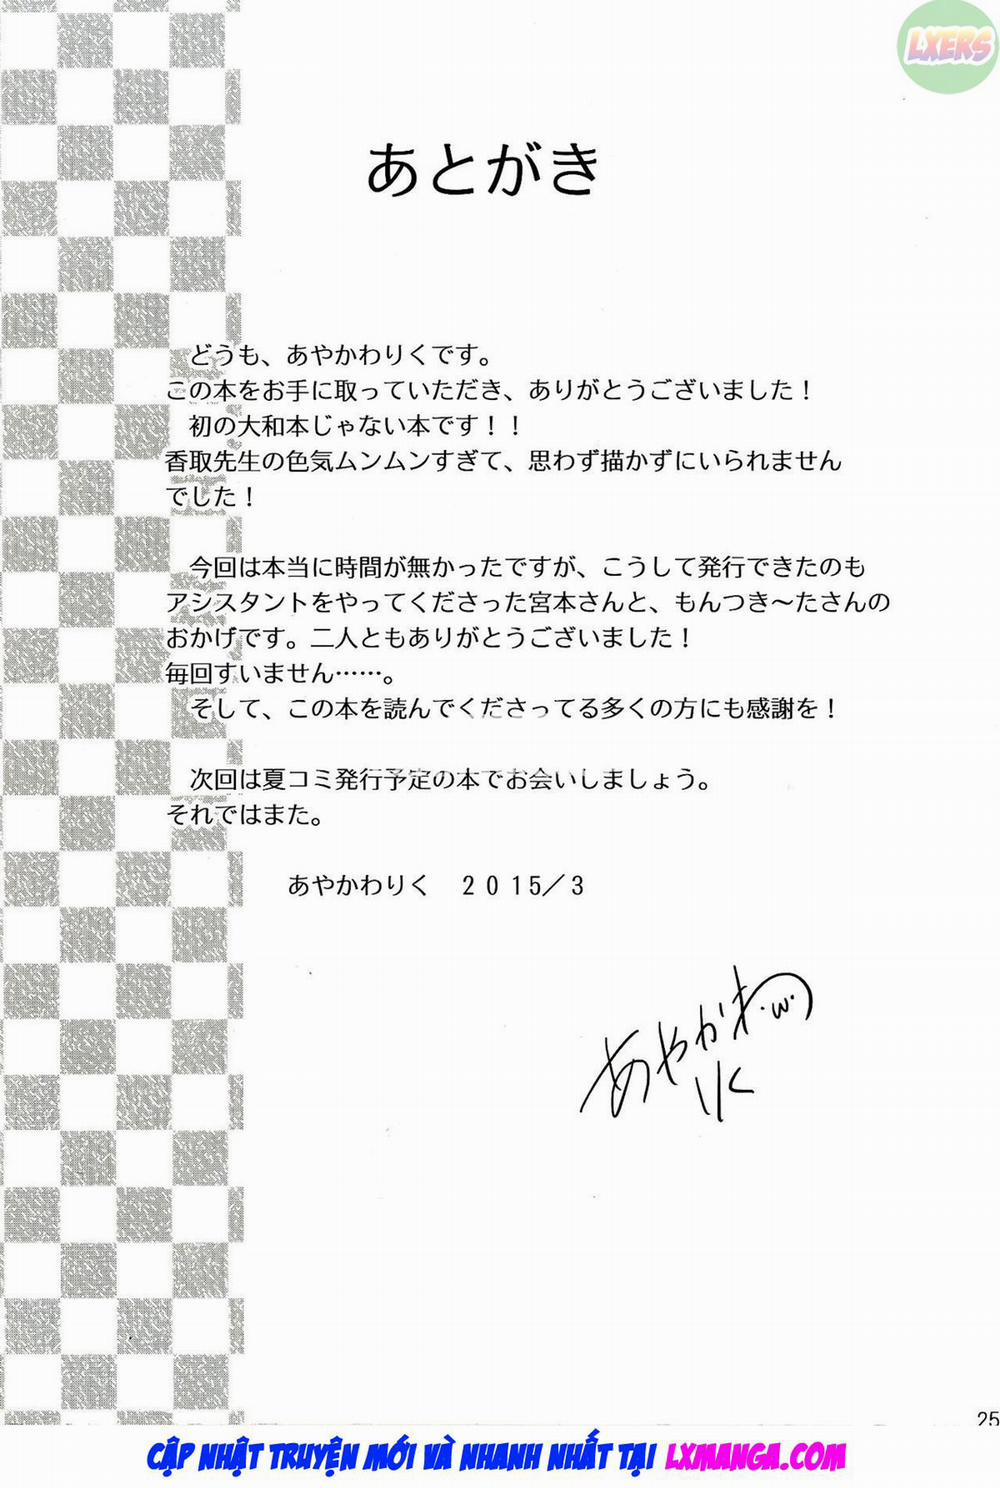 LXERS
あとがき
どうも、あやかわりくです。
この本をお手に取っていただき、ありがとうございました！
初の大和本じゃない本です！！
香取先生の色気ムンムンすぎて、思わず描かずにいられません
でした！
今回は本当に時間が無かったですが、こうして発行できたのも
アシスタントをやってくださった宮本さんと、もんつき～たさんの
おかげです。二人ともありがとうございました！
毎回すいません……。
そして、この本を読んでくださってる多くの方にも感謝を！
次回は夏コミ発行予定の本でお会いしましょう。
それではまた。
あやかわりく　２０１５／３
あやかわ
りく
25
CẬP NHẬT TRUYỆN MỚI VÀ NHANH NHẤT TẠI LXMANGA.COM